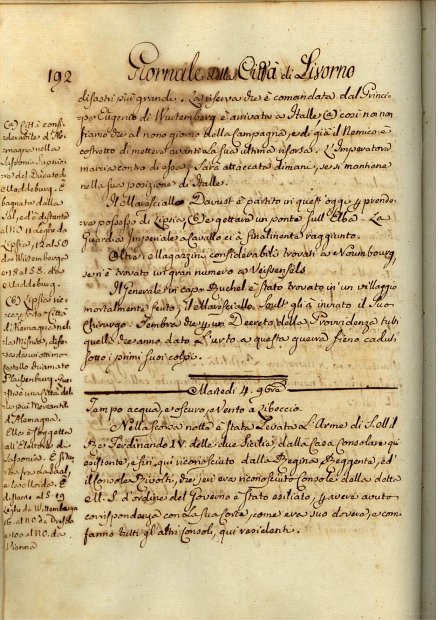 192 Giornale della Città di Livorno
disastri più grandi. La riserva che è comandata dal Princi-
pe Eugenio di Wurtemberg è arrivata a Halle (a) così noi non
siamo che al nono giorno della Campagna, e di già il Nemico è
costretto di mettere avanti la sua ultima risorsa. L'Imperatore
marcia contro di essa; Sarà attaccata dimani, se si mantiene
nella sua posizione di Halle.
Il Maresciallo Davust è partito in quest'oggi per prende-
re possesso di Lipsia, (B) e gettare un ponte sull'Elba. La
Guardia Imperiale a Cavallo ci è finalmente raggiunto.
Oltre i Magazzini considerabili trovati a Noumbourg,
se n'è trovato un gran numero a Veissensels
Il Generale in capo Ruchel è stato trovato in un villaggio
mortalmente ferito; il Maresciallo Soult gli à inviato il Suo
Chirurgo. Sembra che per un Decreto della Provvidenza tutti
quelli che anno dato l'urto a questa guerra sieno caduti
sotto i primi suoi colpi.
Martedì 4. 9bre
Tempo acqua, e oscuro, vento a libeccio.
Nella scorsa notte è stata levata l'Arme di S. M. il
Re Ferdinando IV. delle due Sicilie dalla Casa Consolare qui
esistente, e fin qui riconosciuto dalla Regina Reggente, ed'
il Console che jeri era riconosciuto Console dalla detta
M. S. d'ordine del Governo è stato esiliato, per avere avuto
corrispondenza con la sua Corte, come era suo dovere, e come
fanno tutti gli altri Consoli, qui residenti.
(a) Città consi-
derabile d'Ale-
magna nella
Sassonia Superio-
re nel Ducato di
Magdeburg. È
bagnata dalla
Sal, ed è distante
al NO 11 leghe da
Lipsia, 12 al SO
da Wittemberga
e 18 al SE. da
Magdeburg.
(B) Lipsia ric-
ca e forte Città
d'Alemagna nel-
la Misnia, dife-
sa da un ottimo
Castello chiamato
Pleissenburg. Que-
sta è una Città del-
le più Mercantili
d'Alemagna.
Ella è soggetta
all'Elettore di
Sassonia. È si-
tuata fra la Sal,
e la Mulda. È
distante al S. 19
Leghe da Wittemberga
16 al NO da Dresda
e 100 al NO. da
Vienna